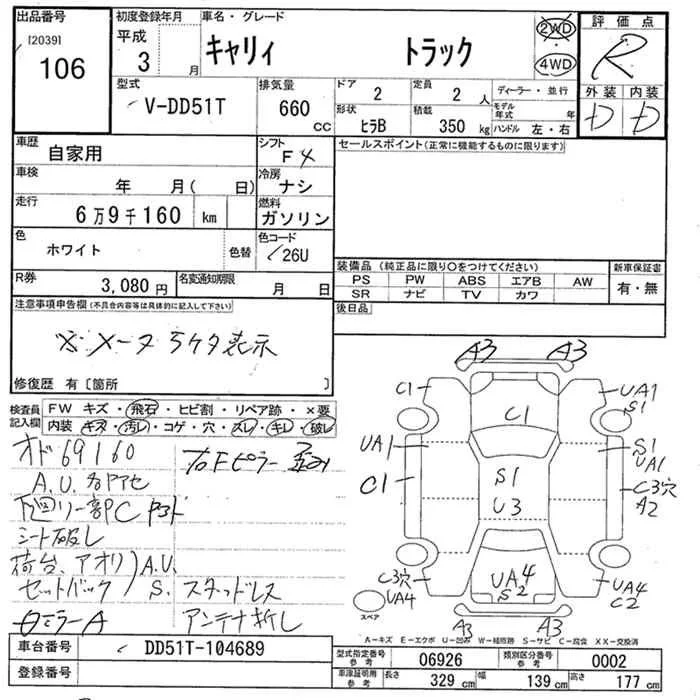 出品番号
[2039]
106
初度登録年月
平成
3 月
車名・グレード
キャリィ トラック
2WD
4WD
評価点
R
外装 内装
D D
型式
V-DD51T
排気量
660 CC
ドア
2
定員
2 人
ディーラー・並行
形状
ヒラB
積載
350 kg
モデル年式 年
ハンドル 左・右
車歴
自家用
シフト
F4
セールスポイント(正常に機能するものに限ります)
車検
年 月( 日)
冷房
ナシ
走行
6万9千160 km
燃料
ガソリン
色
ホワイト
色替
色コード
26U
R券
3,080円
名変通知期限
月 日
装備品(純正品に限り○をつけてください)
新車保証書
PS PW ABS エアB AW
有・無
SR ナビ TV カワ
後日品
注意事項申告欄(不具合内容等は具体的に記入して下さい)
※メータ5ケタ表示
修復歴 有〔箇所 〕
検査員記入欄
FW キズ・飛石・ヒビ割・リペア跡・×要
内装 キズ・汚レ・コゲ・穴・スレ・キレ・破レ
オド69160
右Fピラー歪み
A.U.各アセ
シート破レ
荷台、アオリ)A.U.
セットバック)S.
スタッドレス
ミラーA
アンテナ折レ
A3 A3
C1
UA1
S1
C1
UA1
S1
UA1
C1
S1
U3
C3穴
A2
C3穴
UA4
UA4
S2
UA4
C2
スペア
A3 A3
A-キズ E-エクボ U-凹み W-補修跡 S-サビ C-腐食 XX-交換済
車台番号
DD51T-104689
登録番号
型式指定番号 参考
06926
類別区分番号 参考
0002
車庫証明用 参考
長さ 329 cm
幅 139 cm
高さ 177 cm